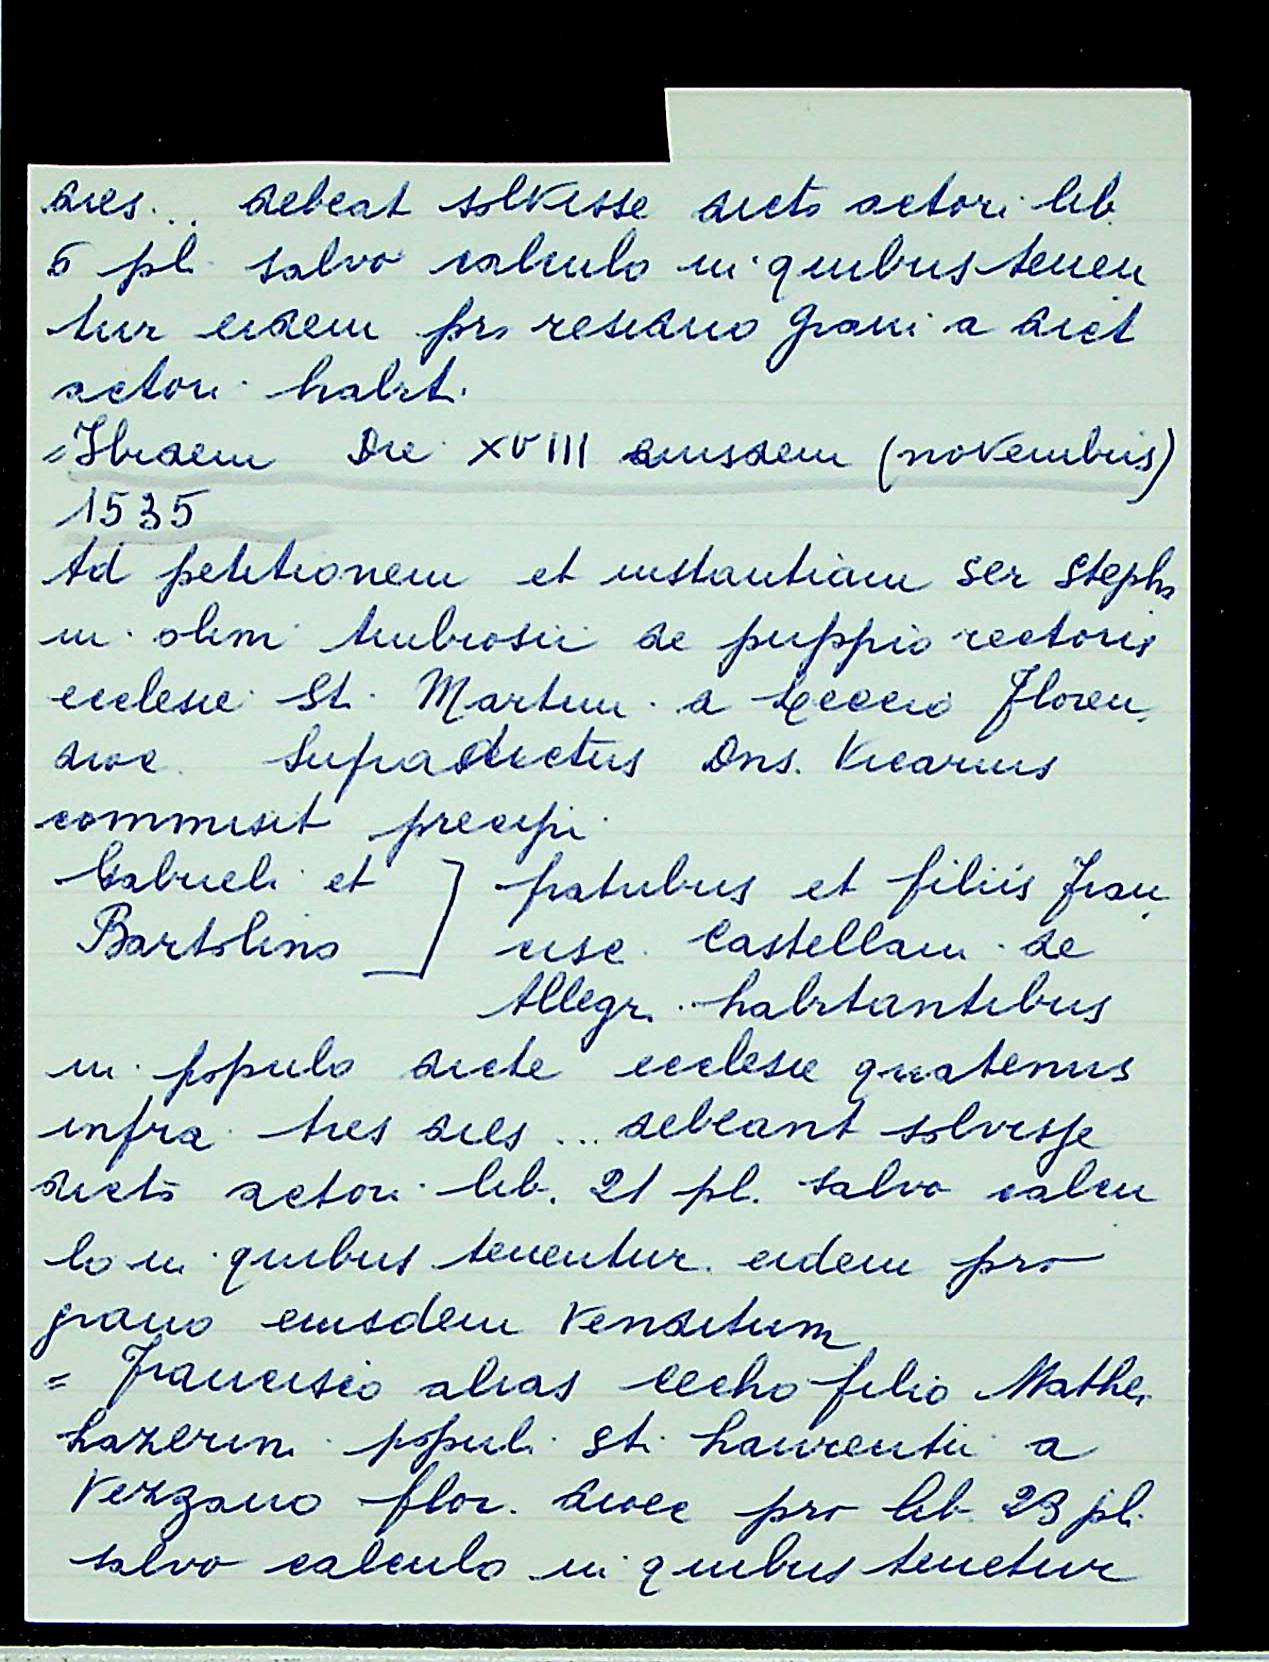 dies... debeat solvisse dicto actori lib.
6 pl. salvo calculo in quibus tenen
tur eidem pro residuo grani a dict
actori habit.
= Ibidem Die XVIII eiusdem (novembris)
1535
Ad petitionem et instantiam ser Stepha
ni olim Ambrosii de puppio rectoris
ecclesie St. Martini a Floren.
dioc. Supradictus Dns. Vicarius
commisit precipi
Gabrieli et ] fratribus et filiis Fran
Bartolino cisc. Castellani de
Allegr. habitantibus
in populo dicte ecclesie quatenus
infra tres dies ... debeant solvisse
dicto actori lib. 21 pl. salvo calcu
lo in quibus tenentur eidem pro
grano eiusdem venditum
= Francisco alias Ceccho filio Mathei
Lazerini populi St. Laurentii a
Vezzano flor. dioec pro lib. 23 pl.
salvo calculo in quibus tenetur